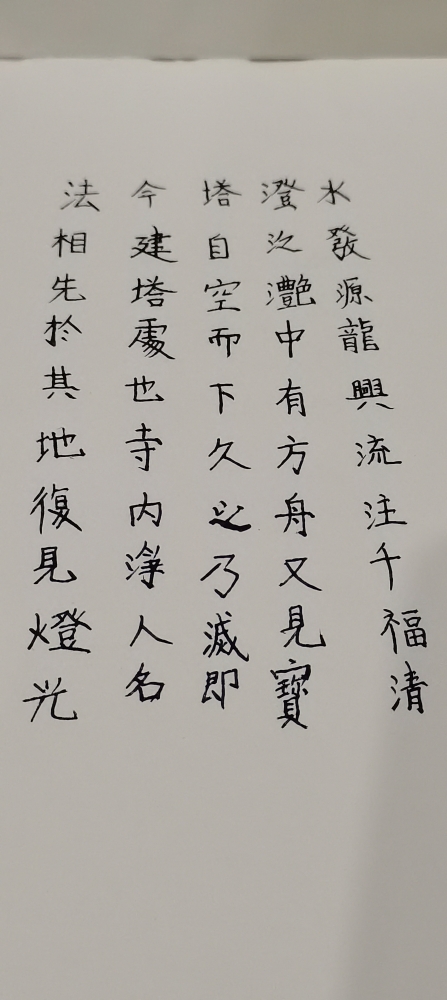 水發源龍興流注千福清
澄汣灔中有方舟又見寶
塔自空而下久之乃滅即
今建塔處也寺内淨人名
法相先於其地復見燈光